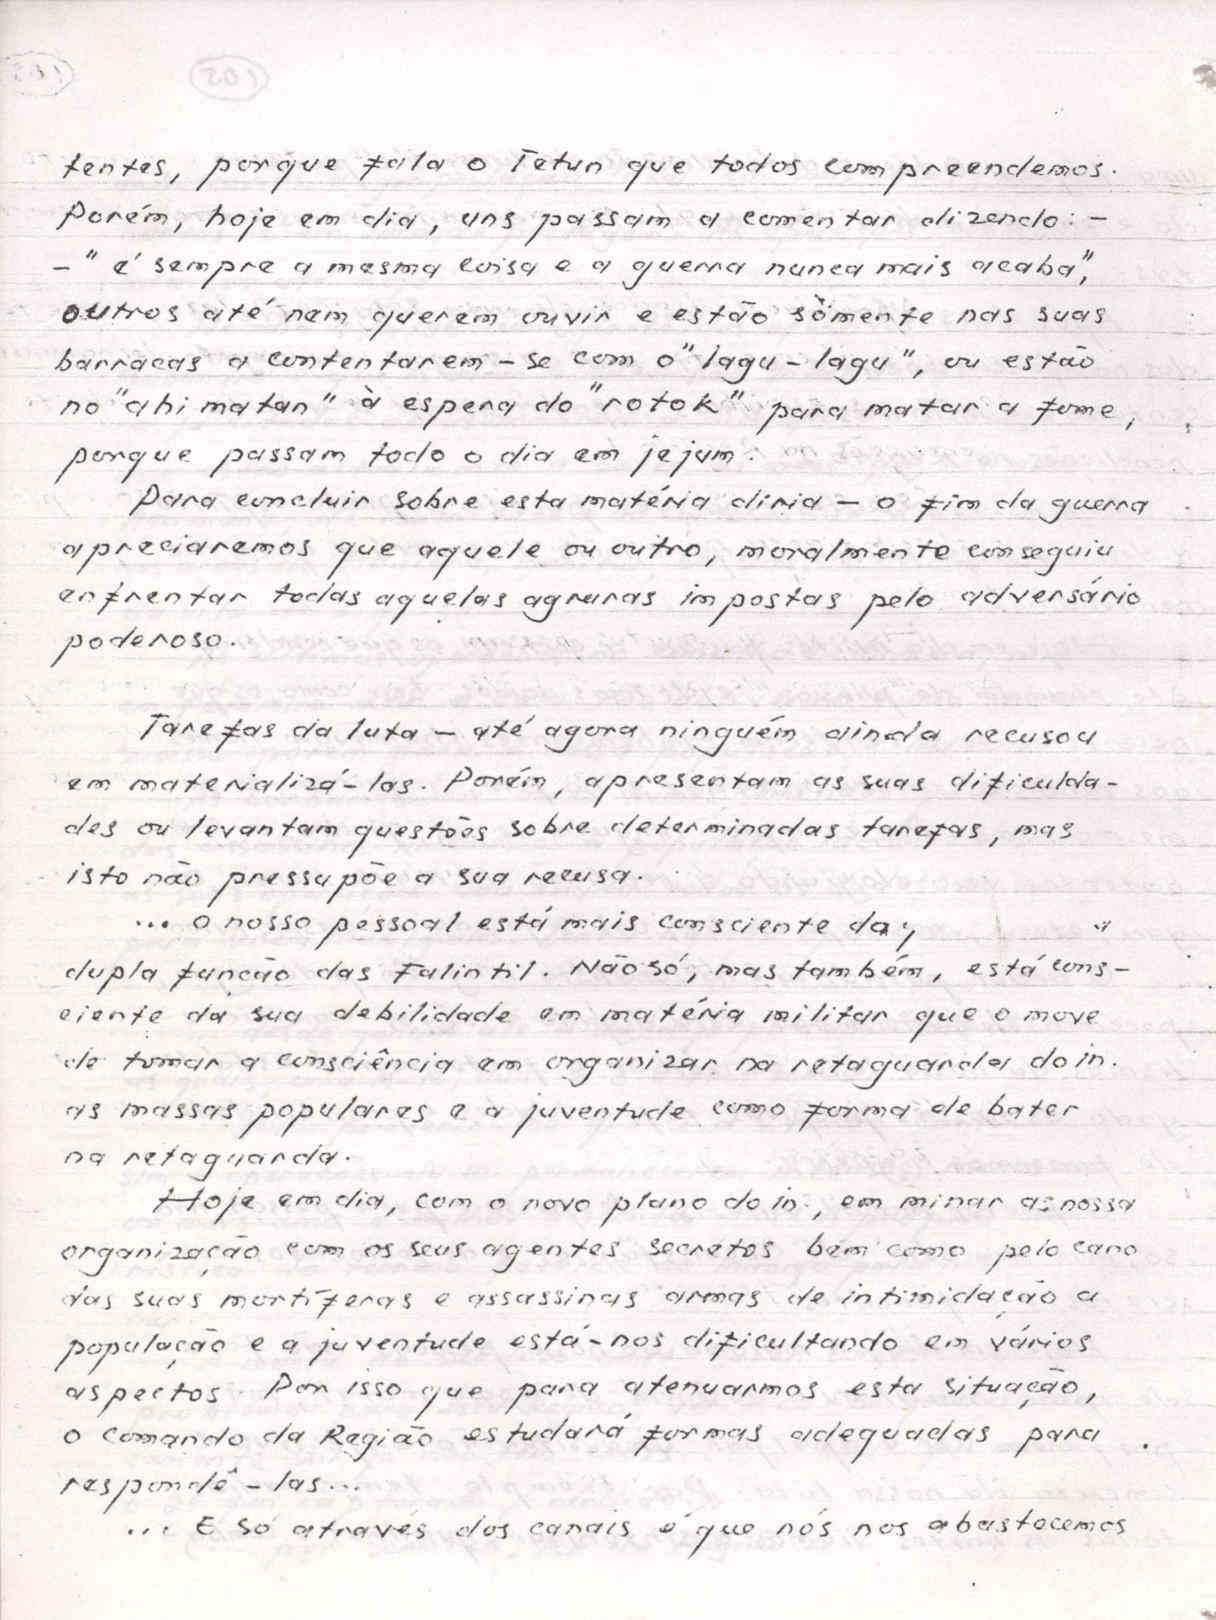 tentes, porque fala o Tetun que todos compreendemos.
Porém, hoje em dia, uns passam a comentar dizendo: -
- "é sempre a mesma coisa e a guerra nunca mais acaba",
outros até nem querem ouvir e estão sòmente nas suas
barracas a contentarem-se com o "lagu-lagu", ou estão
no "ahi matan" à espera do "rotok" para matar a fome,
porque passam todo o dia em jejum.
Para concluir sobre esta matéria diria - o fim da guerra
apreciaremos que aquele ou outro, moralmente conseguiu
enfrentar todas aquelas agruras impostas pelo adversário
poderoso.
Tarefas da luta - até agora ninguém ainda recusou
em materializá-las. Porém, apresentam as suas dificulda-
des ou levantam questões sobre determinadas tarefas, mas
isto não pressupõe a sua recusa.
... O nosso pessoal está mais consciente da
dupla função das Falintil. Não só, mas também, está cons-
ciente da sua debilidade em matéria militar que o move
de tomar a consciência em organizar na retaguarda do in.
as massas populares e a juventude como forma de bater
na retaguarda.
Hoje em dia, com o novo plano do in., em minar as nossa
organização com os seus agentes secretos bem como pelo cano
das suas mortíferas e assassinas armas de intimidação a
população e a juventude está-nos dificultando em vários
aspectos. Por isso que para atenuarmos esta situação,
o Comando da Região estudará formas adequadas para
respondê-las...
... E só através dos canais é que nós nos abastecemos